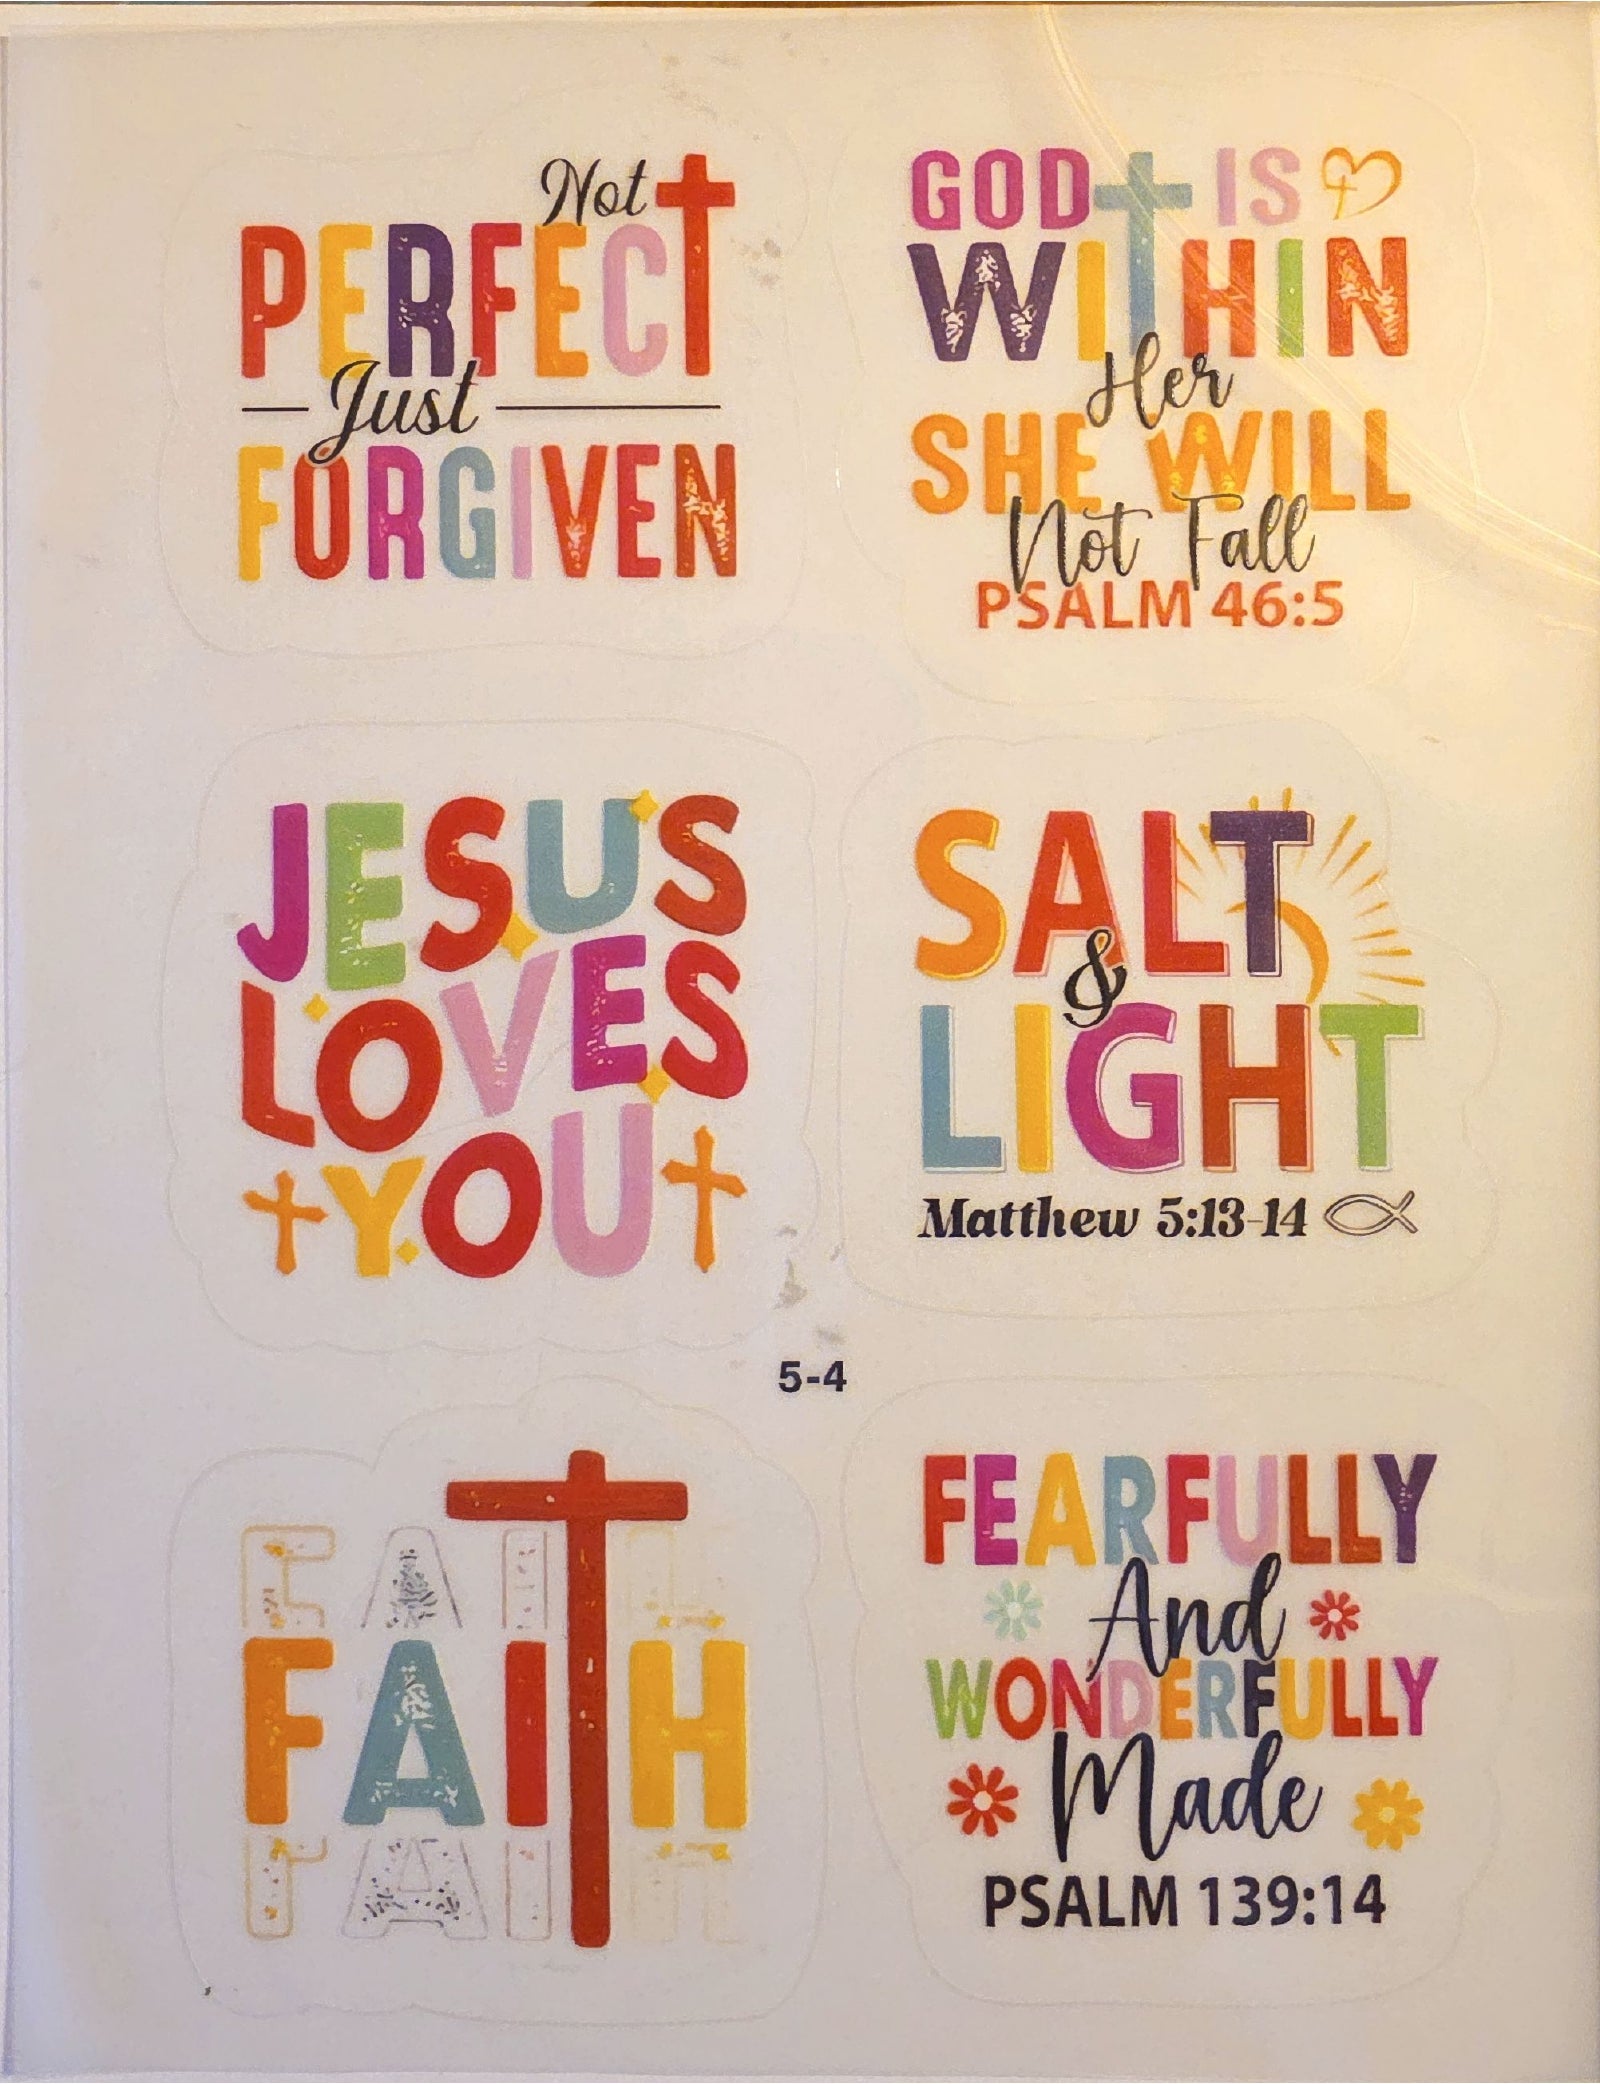 Not
PERFECT
Just
FORGIVEN
GOD IS
WITHIN
Her
SHE WILL
Not Fall
PSALM 46:5
JESUS
LOVES
YOU
SALT
&
LIGHT
Matthew 5:13-14
5-4
FAITH
FAITH
FAITH
FEARFULLY
And
WONDERFULLY
Made
PSALM 139:14